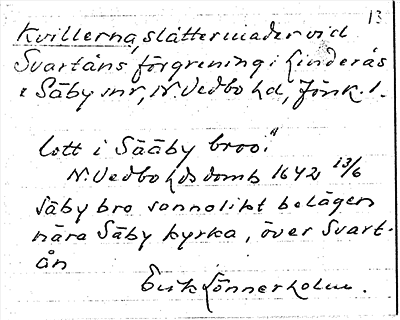 13
Kvillerna, slåttermader vid
Svartåns förgrening i Linderås
o Säby snr, N. Vedbo hd, Jönk. l.
lott i Sääby broo."
N. Vedbo hds domb 1642 13/6
Säby bro sannolikt belägen
nära Säby kyrka, över Svart-
ån
Erik Lönnerholm.